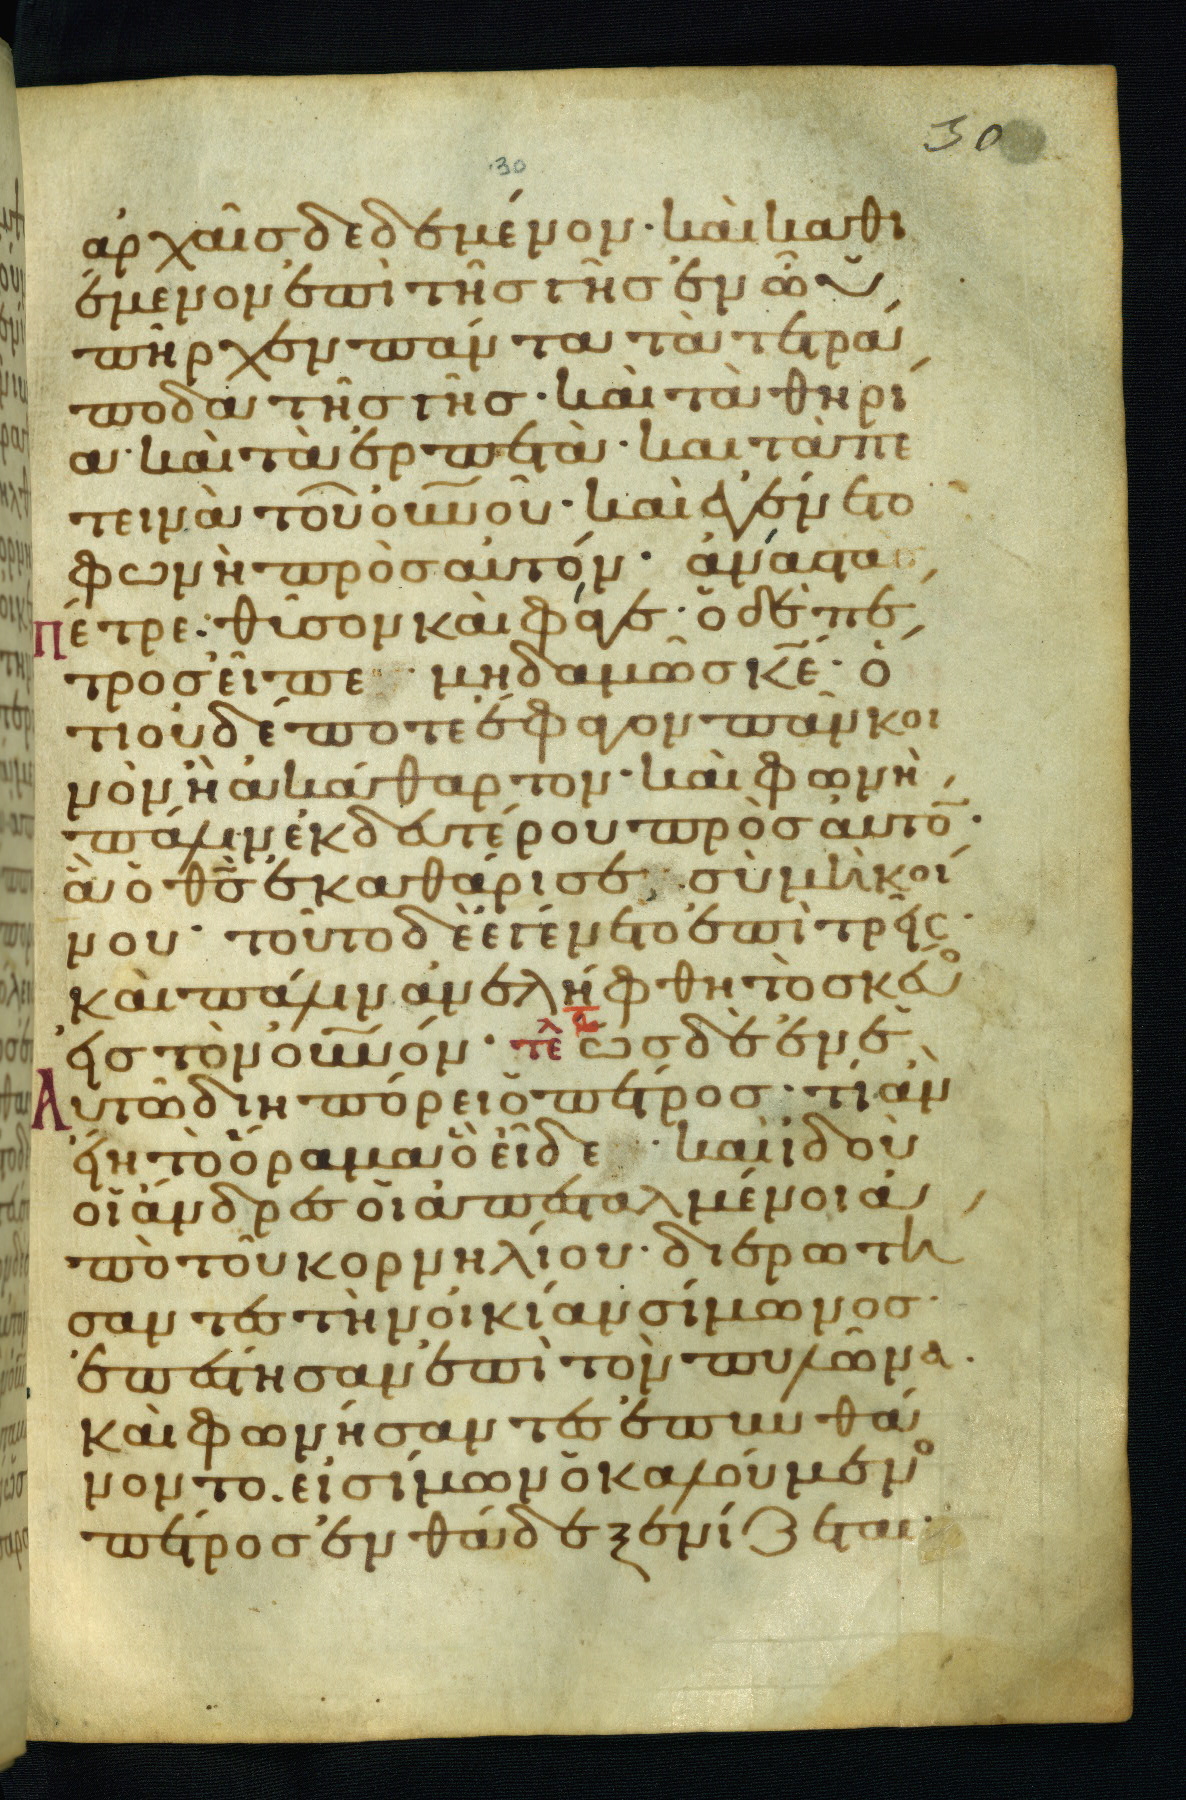 30
30
ἀρχαῖς δεδεμένον· καὶ καθι
έμενον ἐπὶ τῆς γῆς ἐν ᾧ ὑ
πῆρχεν πάντα τὰ τετρά
ποδα τῆς γῆς· καὶ τὰ θηρί
α· καὶ τὰ ἑρπετὰ· και τὰ πε
τεινὰ τοῦ οὐνοῦ· καὶ ἐγένετο
φωνὴ πρὸς αὐτόν· ἀνάστὰς
Πέτρε· θῦσον καὶ φάγε· ὁ δὲ πέ
τρος εἶπε μηδαμῶς κε̄· ὅ
τι οὐδέποτε ἔφαγον πᾶν κοι
νὸν ἢ ἀκάθαρτον· καὶ φωνὴ
πάλιν ἐκ δευτέρου πρὸς αὐτο̄·
ἃ ὁ θς̄ ἐκαθάρισε, σὺ μὴ κοί
νου· τοῦτο δὲ ἐγένετο ἐπὶ τρεῖς·
καὶ πάλιν ἀνελήφθη τὸ σκεῦο
εἰς τὸν οὐνόν· τελ ὡς δὲ ἐν ἑ
Αυτῶ διηπόρει ὁ πέτρος· τί ἂν
εἴη τὸ ὅραμα ὃ εἶδε· καὶ ἰδοὺ
οἱ ἄνδρες οἱ ἀπεσταλμένοι ἀ
πὸ τοῦ κορνηλίου· διερωτή
σαντες τὴν οἰκίαν σίμωνος·
ἐπέστησαν ἐπὶ τὸν πυλῶνα·
καὶ φωνήσαντες ἐπυνθά
νοντο. εἰ σίμων ὁ καλούμενο
πέτρος ἐνθάδε ξενίζεται·